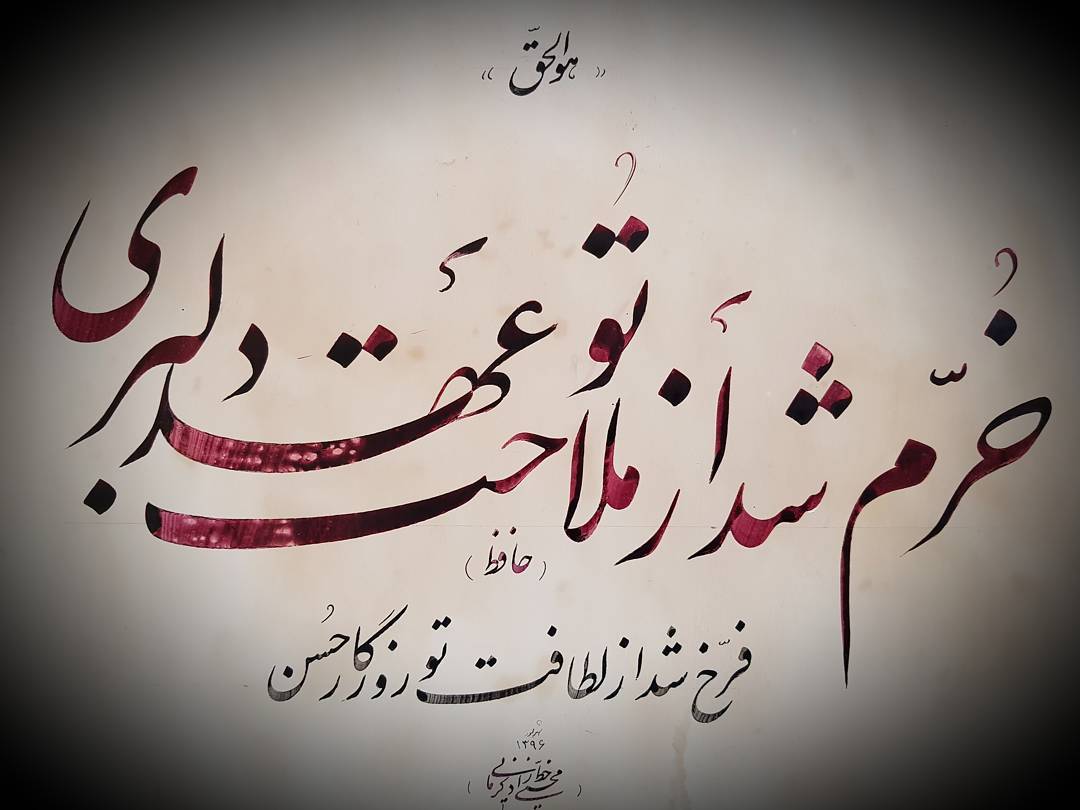 ((هوالحقّ))
خُرّم شد از ملاحت تُو عَهد دلبری
(حافظ)
فرّخ شد از لطافت تو روزگار حُسن
شهریور
۱۳۹۶